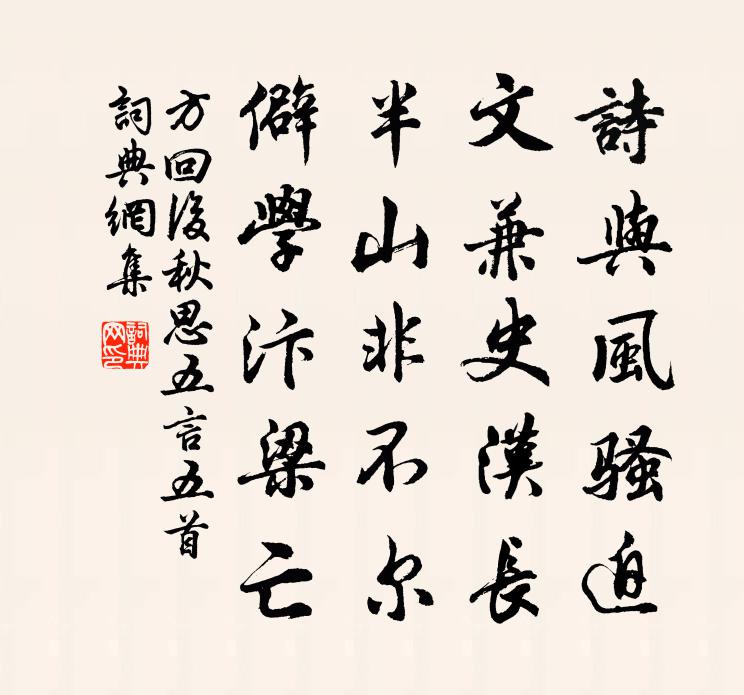 詩與風騷迫
文兼史漢長
半山非不尔
僻學汴梁亡
方回後秋思五言五首
詞典網集
詞典网印